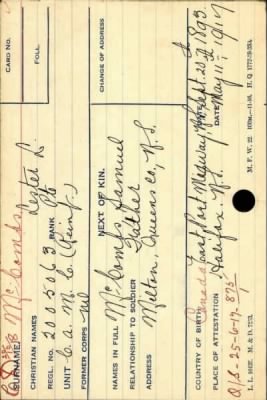 SURNAME McCombs,
CARD NO.
CHRISTIAN NAMES Lester L.
FOLL.
REGL. NO. 2005063 RANK Pte
UNIT C.A.M.C. (Reinf.)
FORMER CORPS nil
NEXT OF KIN.
CHANGE OF ADDRESS
NAMES IN FULL McCombs, Samuel
RELATIONSHIP TO SOLDIER Father
ADDRESS Milton, Queens Co, N.S.
COUNTRY OF BIRTH Canada East Port Medway N.S. DATE Sept. 20th 1893
PLACE OF ATTESTATION Halifax N.S. DATE May 11th 1917
O/S-25-6-17. 875
L. L. M. & D.
M. F. W. 22. H. Q. 1772-39-